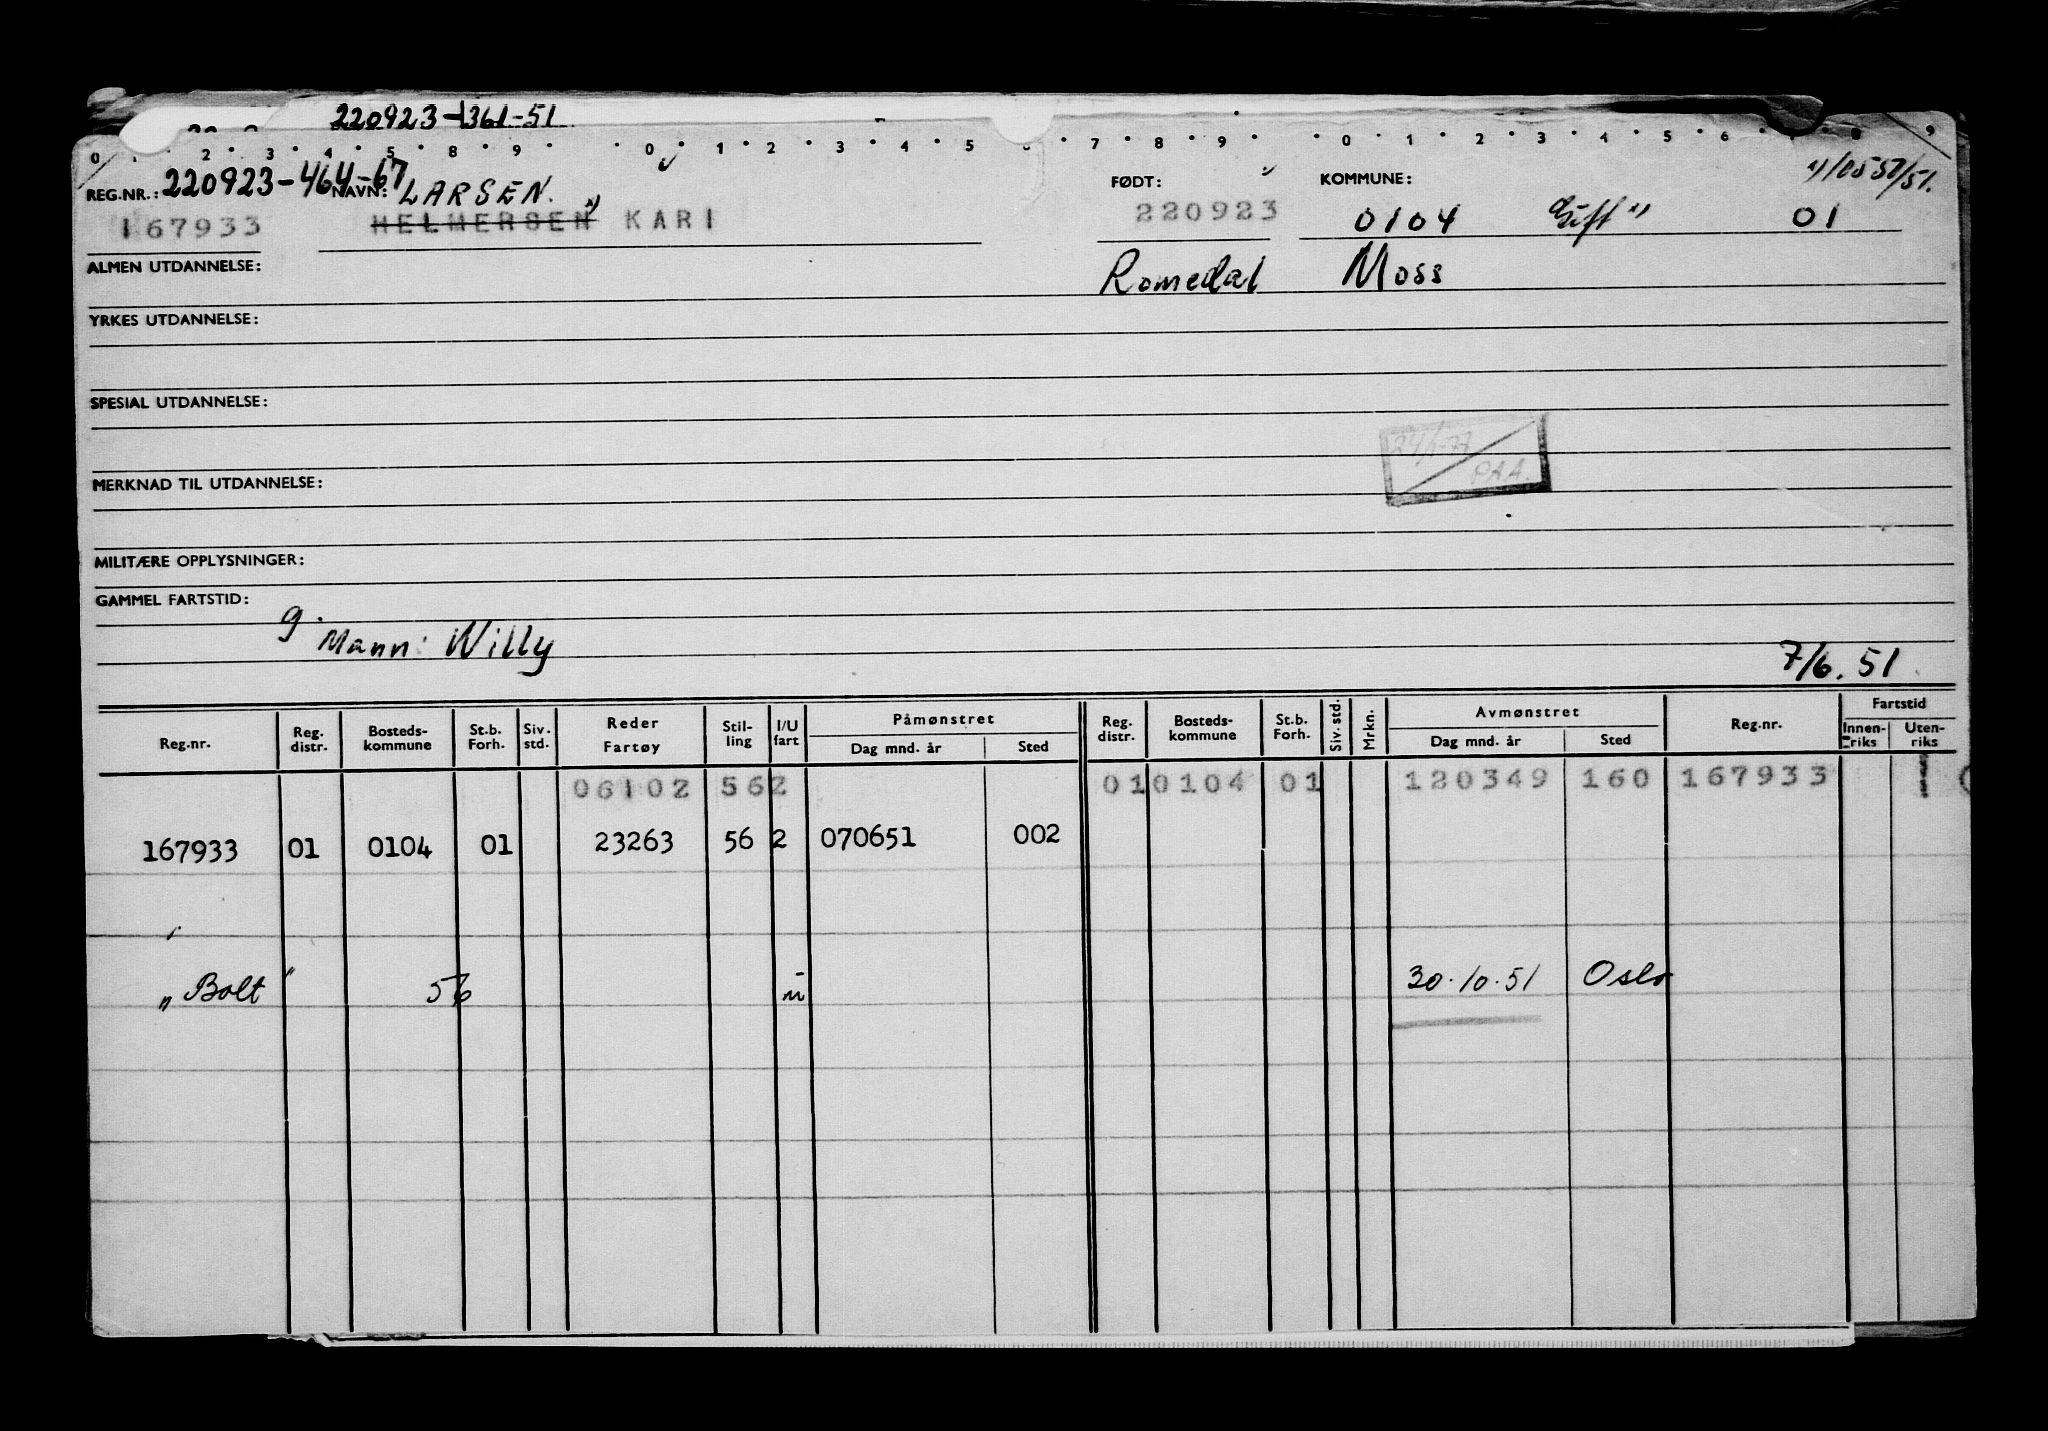 220923-1361-51
0 1 2 3 4 5 8 9 0 1 2 3 4 5 6 7 8 9 0 1 2 3 4 5 6 8 9
REG.NR.: 220923-464-67 NAVN: LARSEN. FØDT: KOMMUNE: 1)10557/51.
167933 HELMERSEN 1) KARI 220923 0104 Gift 1) 01
ALMEN UTDANNELSE: Romedal Moss
YRKES UTDANNELSE:
SPESIAL UTDANNELSE:
24/1-77
PAA.
MERKNAD TIL UTDANNELSE:
MILITÆRE OPPLYSNINGER:
GAMMEL FARTSTID:
g.
Mann: Willy 7/6.51
Reg.nr. Reg. distr. Bosteds-kommune St.b. Forh. Siv. std. Reder Fartøy Stil-ling I/U fart Påmønstret Dag mnd. år Sted Reg. distr. Bosteds-kommune St.b. Forh. Siv. std. Mrkn. Avmønstret Dag mnd. år Sted Reg.nr. Fartstid Innen-riks Uten-riks
06102 562 010104 01 120349 160 167933 1
167933 01 0104 01 23263 56 2 070651 002
"Bolt" 56 u 30.10.51 Oslo